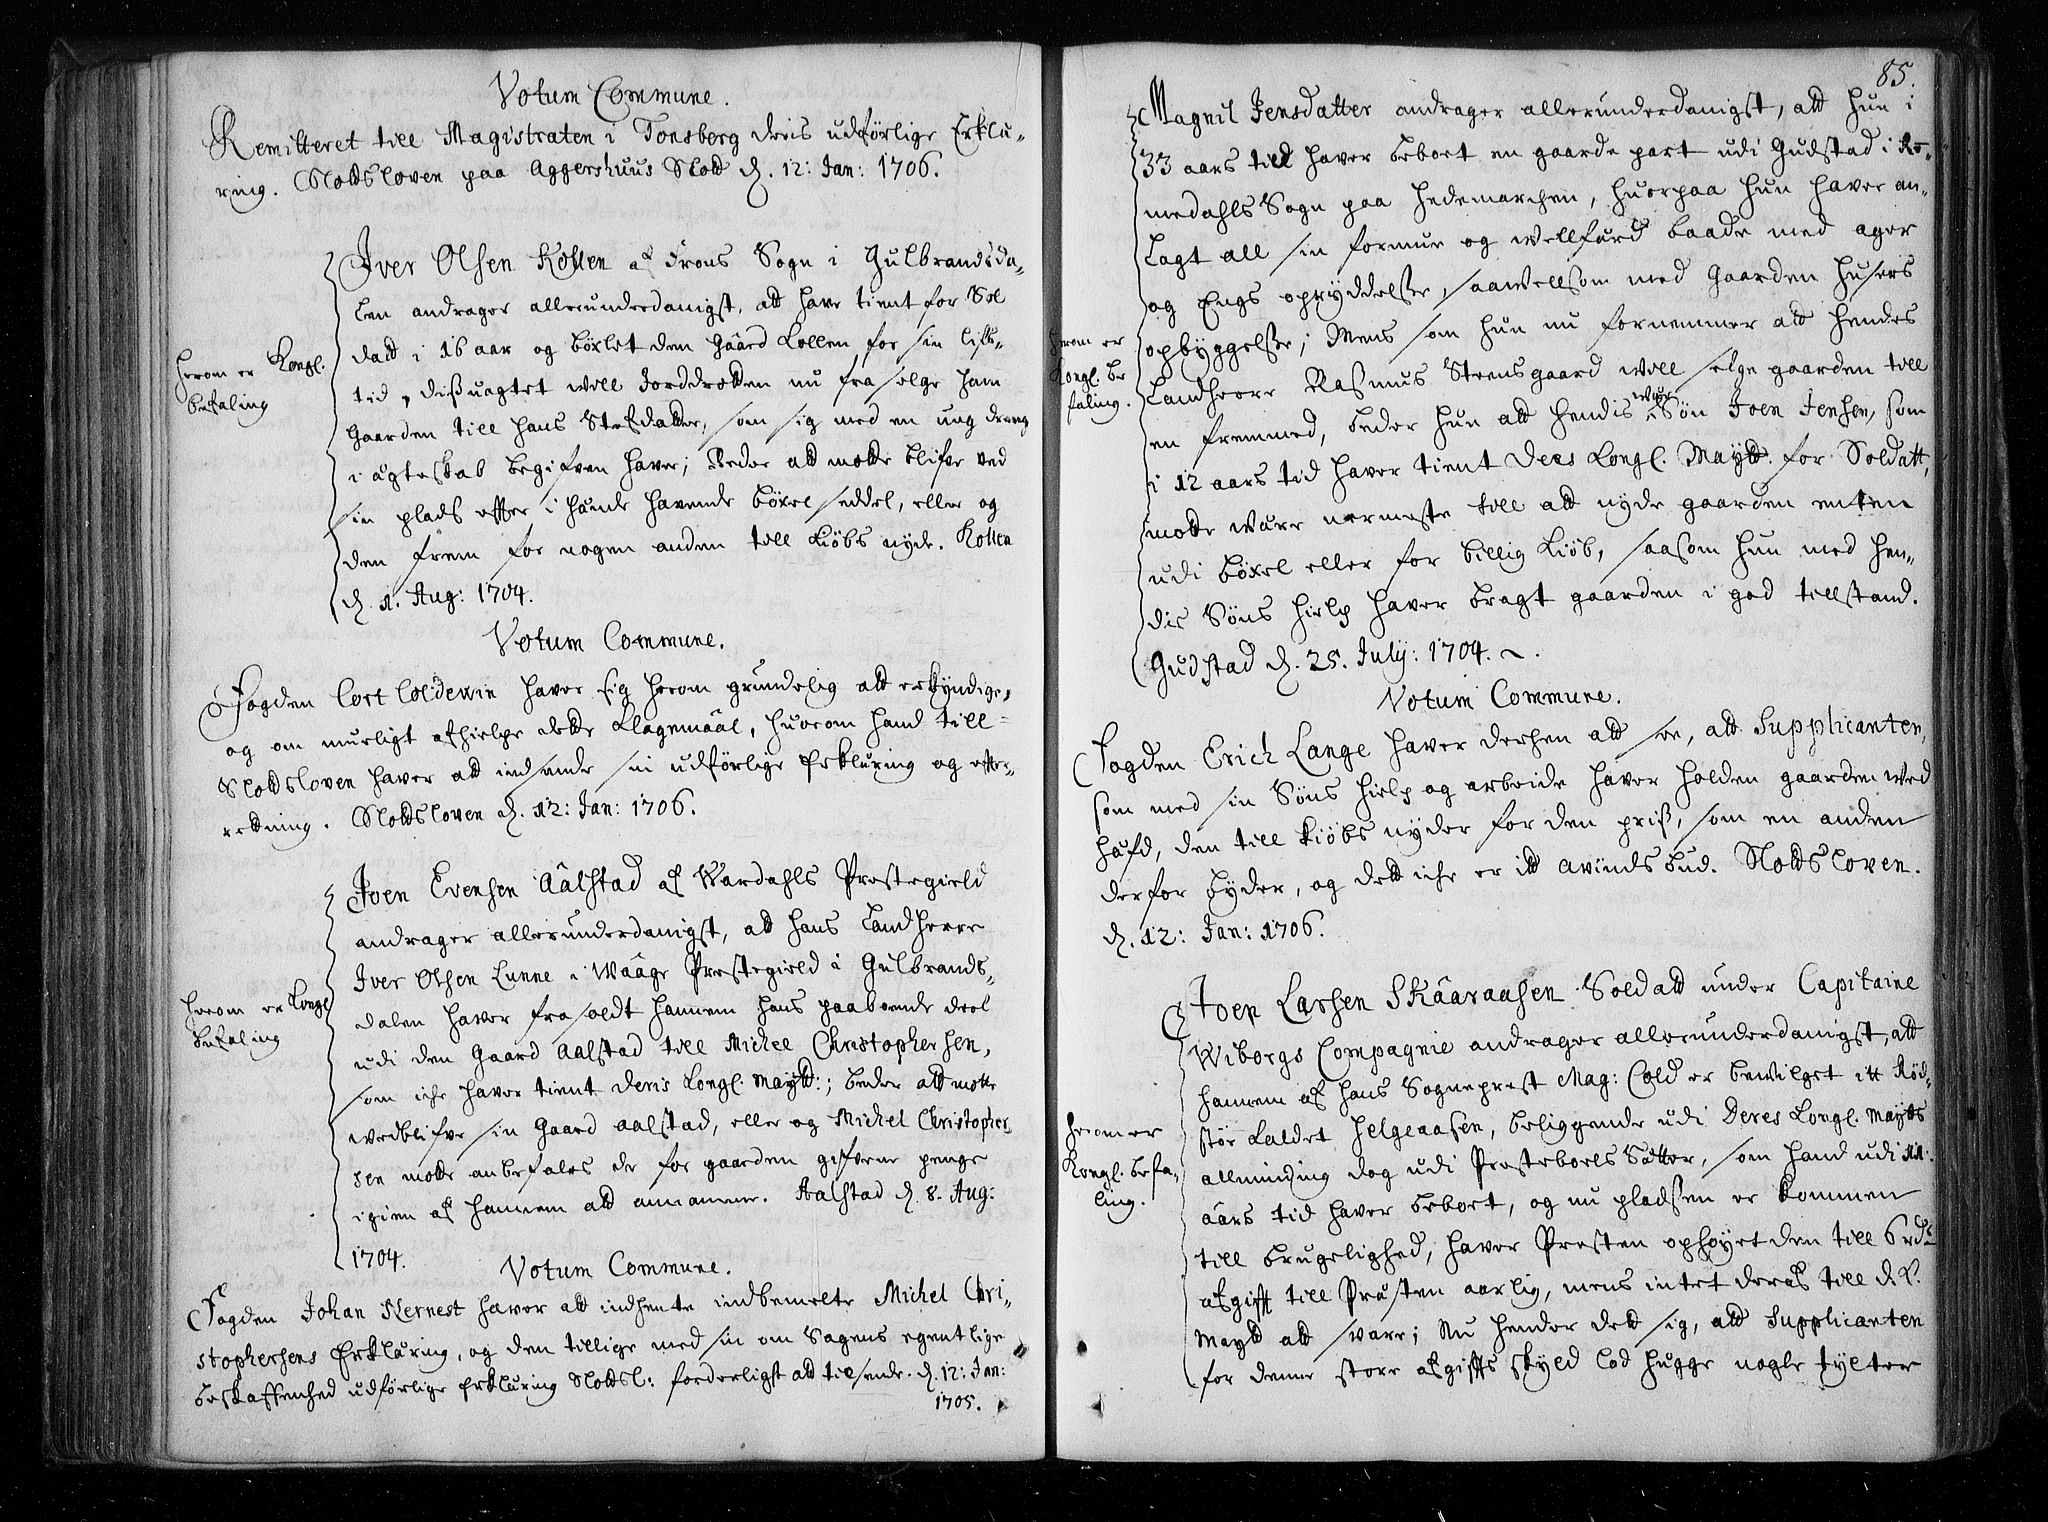 Votum Commune.
Remitteret till Magistraten i Tonsberg deris udførlige Erklæ-
ring. Slottsloven paa Aggershuus Slott d. 12: Jan: 1706.
Iver Olsen Kollen af Frons Sogn i Gulbrandsda-
len andrager allerunderdanigst, att have tient for Sol
datt i 16 aar og böxlet den Gaard Kollen for sin lifs-
tid, dissuagtet will Jorddrotten nu fra selge ham
Gaarden till hans Stefdatter, som sig med en ung dreng
i ægteskab begifven haver; Beder att motte blifve ved
sin plads effter i hænde havende böxelseddel, eller og
den frem for nogen anden till kiöbs nyde. Kollen
d. 1. Aug: 1704.
herom er Kongl.
befaling
Votum Commune.
Fogden Cort Coldewin haver sig herom grundelig att erkyndige,
og om mueligt afhielpe dette Klagemaal, huorom hand till
Slottsloven haver att indsende sin udförlige Erklæring og effter-
retning. Slottsloven d. 12: Jan: 1706.
Joen Evensen Aalstad af Wardahls Prestegield
andrager allerunderdanigst, att hans Landherre
Iver Olsen Lunne i Waage Prestegield i Gulbrands-
dalen haver frasoldt hannem hans paaboende deel
udi den Gaard Aalstad till Michel Christophersen,
som iche haver tient deris Kongl. Maytt:; beder att motte
wedblifve sin Gaard Aalstad, eller og Michel Christopher
sen motte anbefales de for gaarden gifvene penge
igien af hannem att annamme. Aalstad d. 8. Aug:
1704.
herom er Kongl
befaling
Votum Commune.
Fogden Johan Nernest haver att indhente indbemelte Michel Chri-
stophersens Erklæring, og den tillige med sin om Sagens egentlige
beskaffenhed udförlige Erklæring Slottsl: forderligst att tilsende. d. 12: Jan:
1705.
85.
Magnil Jensdatter andrager allerunderdanigst, att hun i
33 aars tiid haver beboet en gaarde part udi Gudstad i Ro-
medahls Sogn paa Hedemarchen, huorpaa hun haver an-
lagt all sin formue og wellfærd baade med ager
og Engs opryddelse, saawellsom med Gaarden husers
opbyggelse; Mens som hun nu fornemmer att hendes
Landherre Rasmus Steensgaard will selge gaarden till
en fremmed, beder hun att hendis Søn Joen Jensen, som
i 12 aars tid haver tient Dees Kongl. Maytt. for Soldatt,
motte være nermeste till att nyde gaarden enten
udi böxel eller for billig kiöb, saasom hun med hen-
dis Söns hielp haver bragt gaarden i god tillstand.
Gudstad d. 25. July: 1704.
herom er
Kongl. be
faling.
Votum Commune.
Fogden Erich Lange haver derhen att see, att Supplicanten,
som med sin Söns hielp og arbeide haver holden gaarden wed
hæfd, den till kiöbs nyder for den priß, som en anden
derfor byder, og dett iche er itt avinds bud. Slottsloven.
d. 12: Jan: 1706.
Joen Larsen Skaaraasen Soldatt under Capitaine
Wiborgs Compagnie andrager allerunderdanigst, att
hannem af hans Sogneprest Mag: Cold er bewilget itt Rød-
ste kaldet Helgeaasen, beliggende udi Deres Kongl. Maytts
allminding dog udi Presteboels Sætter, som hand udi 11:
aars tid haver beboet, og nu pladsen er kommen
till brugelighed, haver Presten ophøyet den till 6 rd.
afgifft till Præsten aarlig, mens intet deraf till d. K.
Maytt att svare; Nu hender dett sig, att Supplicanten
for denne store afgiffts skyld lod hugge nogle tylter
herom er
Kongl. befa-
ling.